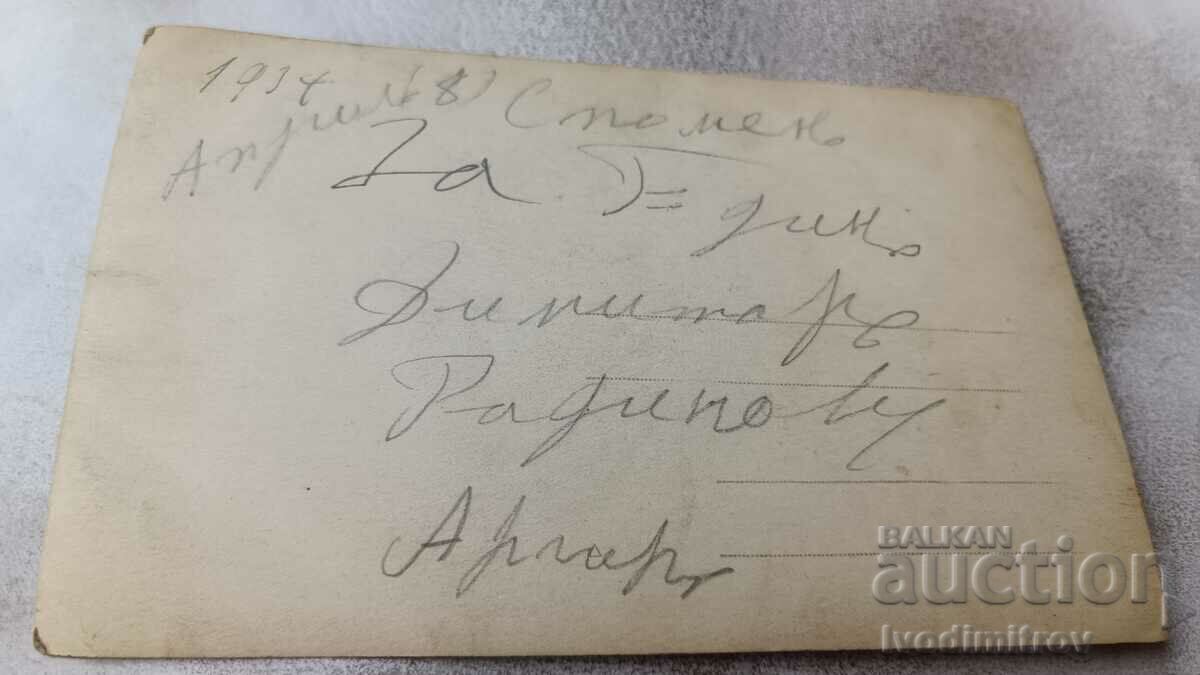 1934
Априлъ 8 Споменъ
За Г= динъ
Димитаръ
Радиновъ
Аргиръ
BALKAN
auction
Ivodimitrov